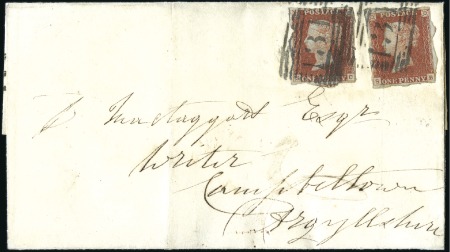 POSTAGE POSTAGE
ONE PENNY ONE PENNY
Mactaggart Esqr
Writer
Campbeltown
Argyllshire